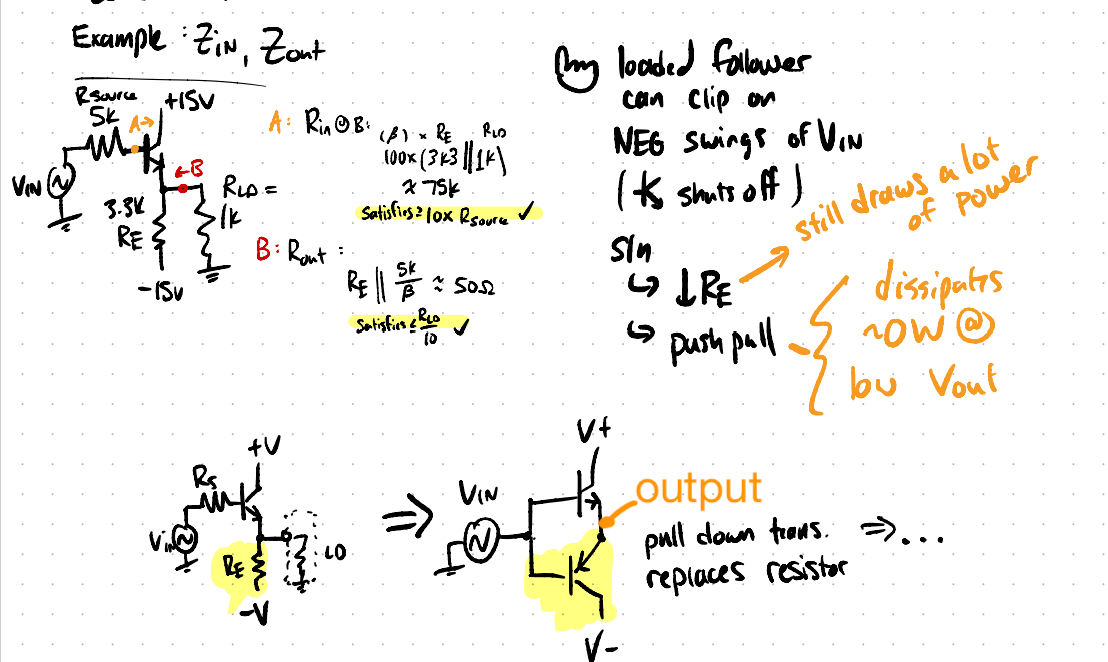 Example : ZIN, Zout
Rsource
5K
A→
+15V
VIN
←B
3.3K
RE
RLD =
1K
-15V
A: Rin @ B:
(β) × RE RLD
100x (3K3 || 1K)
≈ 75K
Satisfies ≥ 10x Rsource ✓
B: Rout :
RE || 5K/β ≈ 50Ω
Satisfies ≤ RLD/10 ✓
loaded follower
can clip on
NEG swings of VIN
( shuts off )
Sln
↳ ↓RE
still draws a lot
of power
↳ push pull
dissipates
~0W @
low Vout
+V
Rs
Vin
RE
LD
-V
⇒
V+
VIN
output
V-
pull down trans. ⇒...
replaces resistor